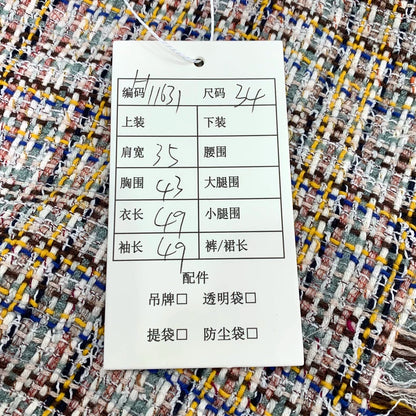 编码 H11631 尺码 34
上装 下装
肩宽 35 腰围
胸围 43 大腿围
衣长 49 小腿围
袖长 49 裤/裙长
配件
吊牌□ 透明袋□
提袋□ 防尘袋□